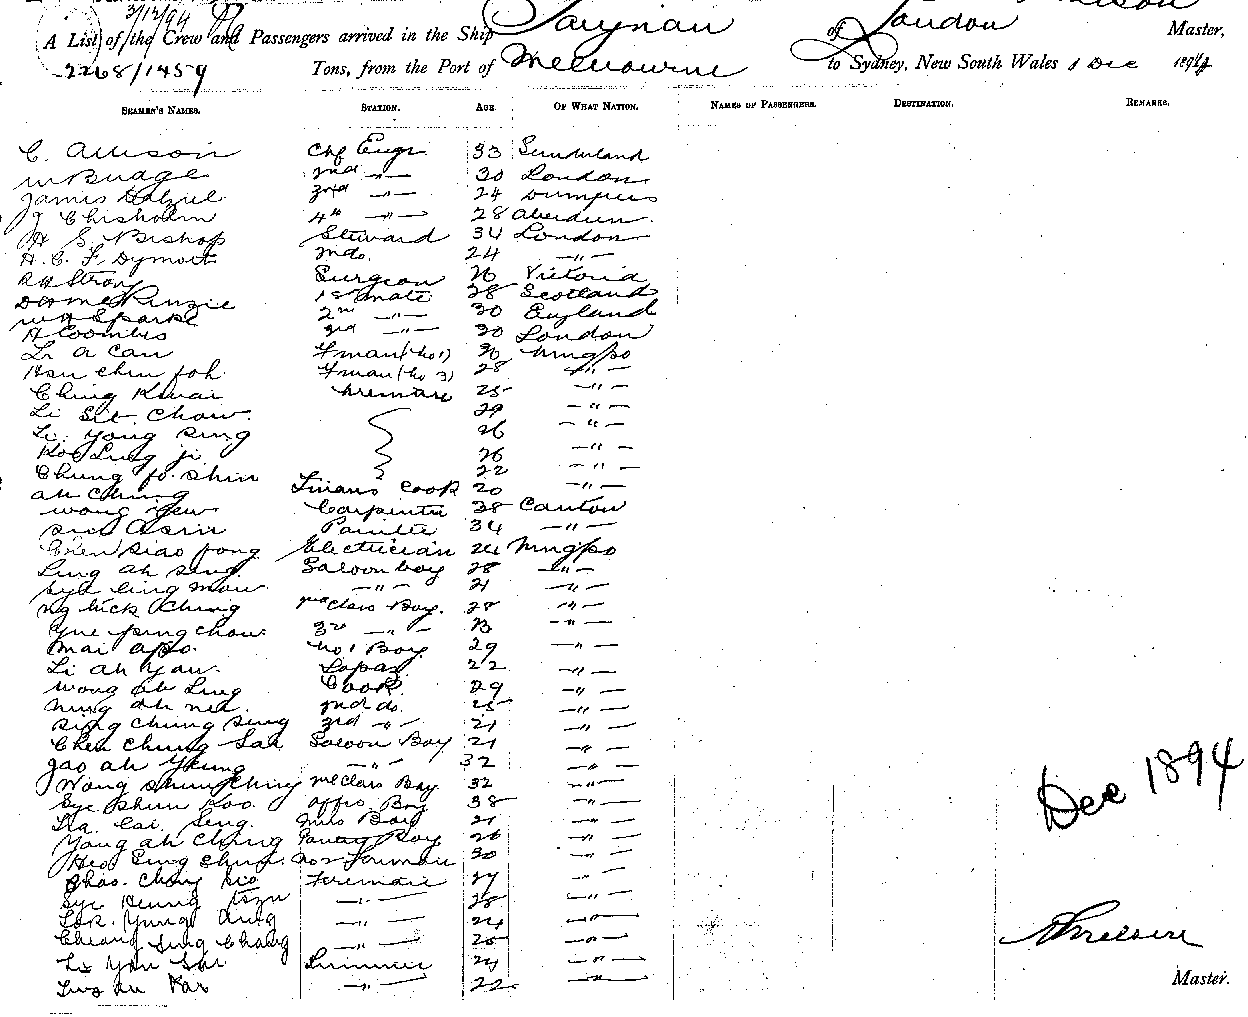 3/12/94
A List of the Crew and Passengers arrived in the Ship Taiyuan of London Master,
2268/1459 Tons, from the Port of Melbourne to Sydney, New South Wales 1 Dec 1894
SEAMEN'S NAMES. STATION. AGE. OF WHAT NATION. NAMES OF PASSENGERS. DESTINATION. REMARKS.
C. Allison Chf Engr 33 Sunderland
W Budge 2nd —"— 30 London
James Dalziel 3rd —"— 24 Dumfries
J Chisholm 4th —"— 28 Aberdeen
H S. Bishop Steward 34 London
H. C. F. Dymott 2nd do. 24 —"—
R H Strong Surgeon 26 Victoria
McKenzie 1st mate 28 Scotland
W H Sparke 2nd —"— 30 England
H Coombes 3rd —"— 30 London
Li a Can Fman (No 1) 30 Ningpo
Hsu chin foh Fman (No 3) 28 —"—
Ching Kwai Fireman 25 —"—
Li Sit Chow 29 —"—
Li Yong Sing 26
Koo Ling ji 26 —"—
Chung fo. Shin 22 —"—
ah Ching Fmans Cook 20 —"—
Wong Yew Carpenter 38 Canton
Painter 34 —"—
Chen Siao fong Electrician 24 Ningpo
Ling ah Sing Saloon boy 28 —"—
Sye ling mow —"— 21 —"—
Ng kick Ching 2nd Class Boy. 28 —"—
Yue ping chow 3rd —"— 23 —"—
Mai apo. No 1 Boy 29 —"—
Li ah Yau. Lopas 22 —"—
Wong ah Ling Cook 29 —"—
Ning ah 2nd do. 25 —"—
Sing Chung Sung 3rd —"— 21 —"—
Chen Chung Sah Saloon Boy 21 —"—
Jao ah Yeung —"— 32 —"—
Wong Shung Ching 2nd Class Boy 32 —"—
Sye Shun Koo. Offrs. Boy 38 —"—
Lia Cai Seng Boy 21 —"—
Yong ah Ching Pantry Boy 26 —"—
Heo Sing Shing No 2 Foreman 30 —"—
Shao. Chong Kio Fireman 27 —"—
Sye Keung —"— 28 —"—
Lok. Yung —"— 24 —"—
Cheang Sing Chang —"— 25 —"—
Li Yau Sai Trimmer 24 —"—
—"— 22 —"—
Dec 1894
Master.